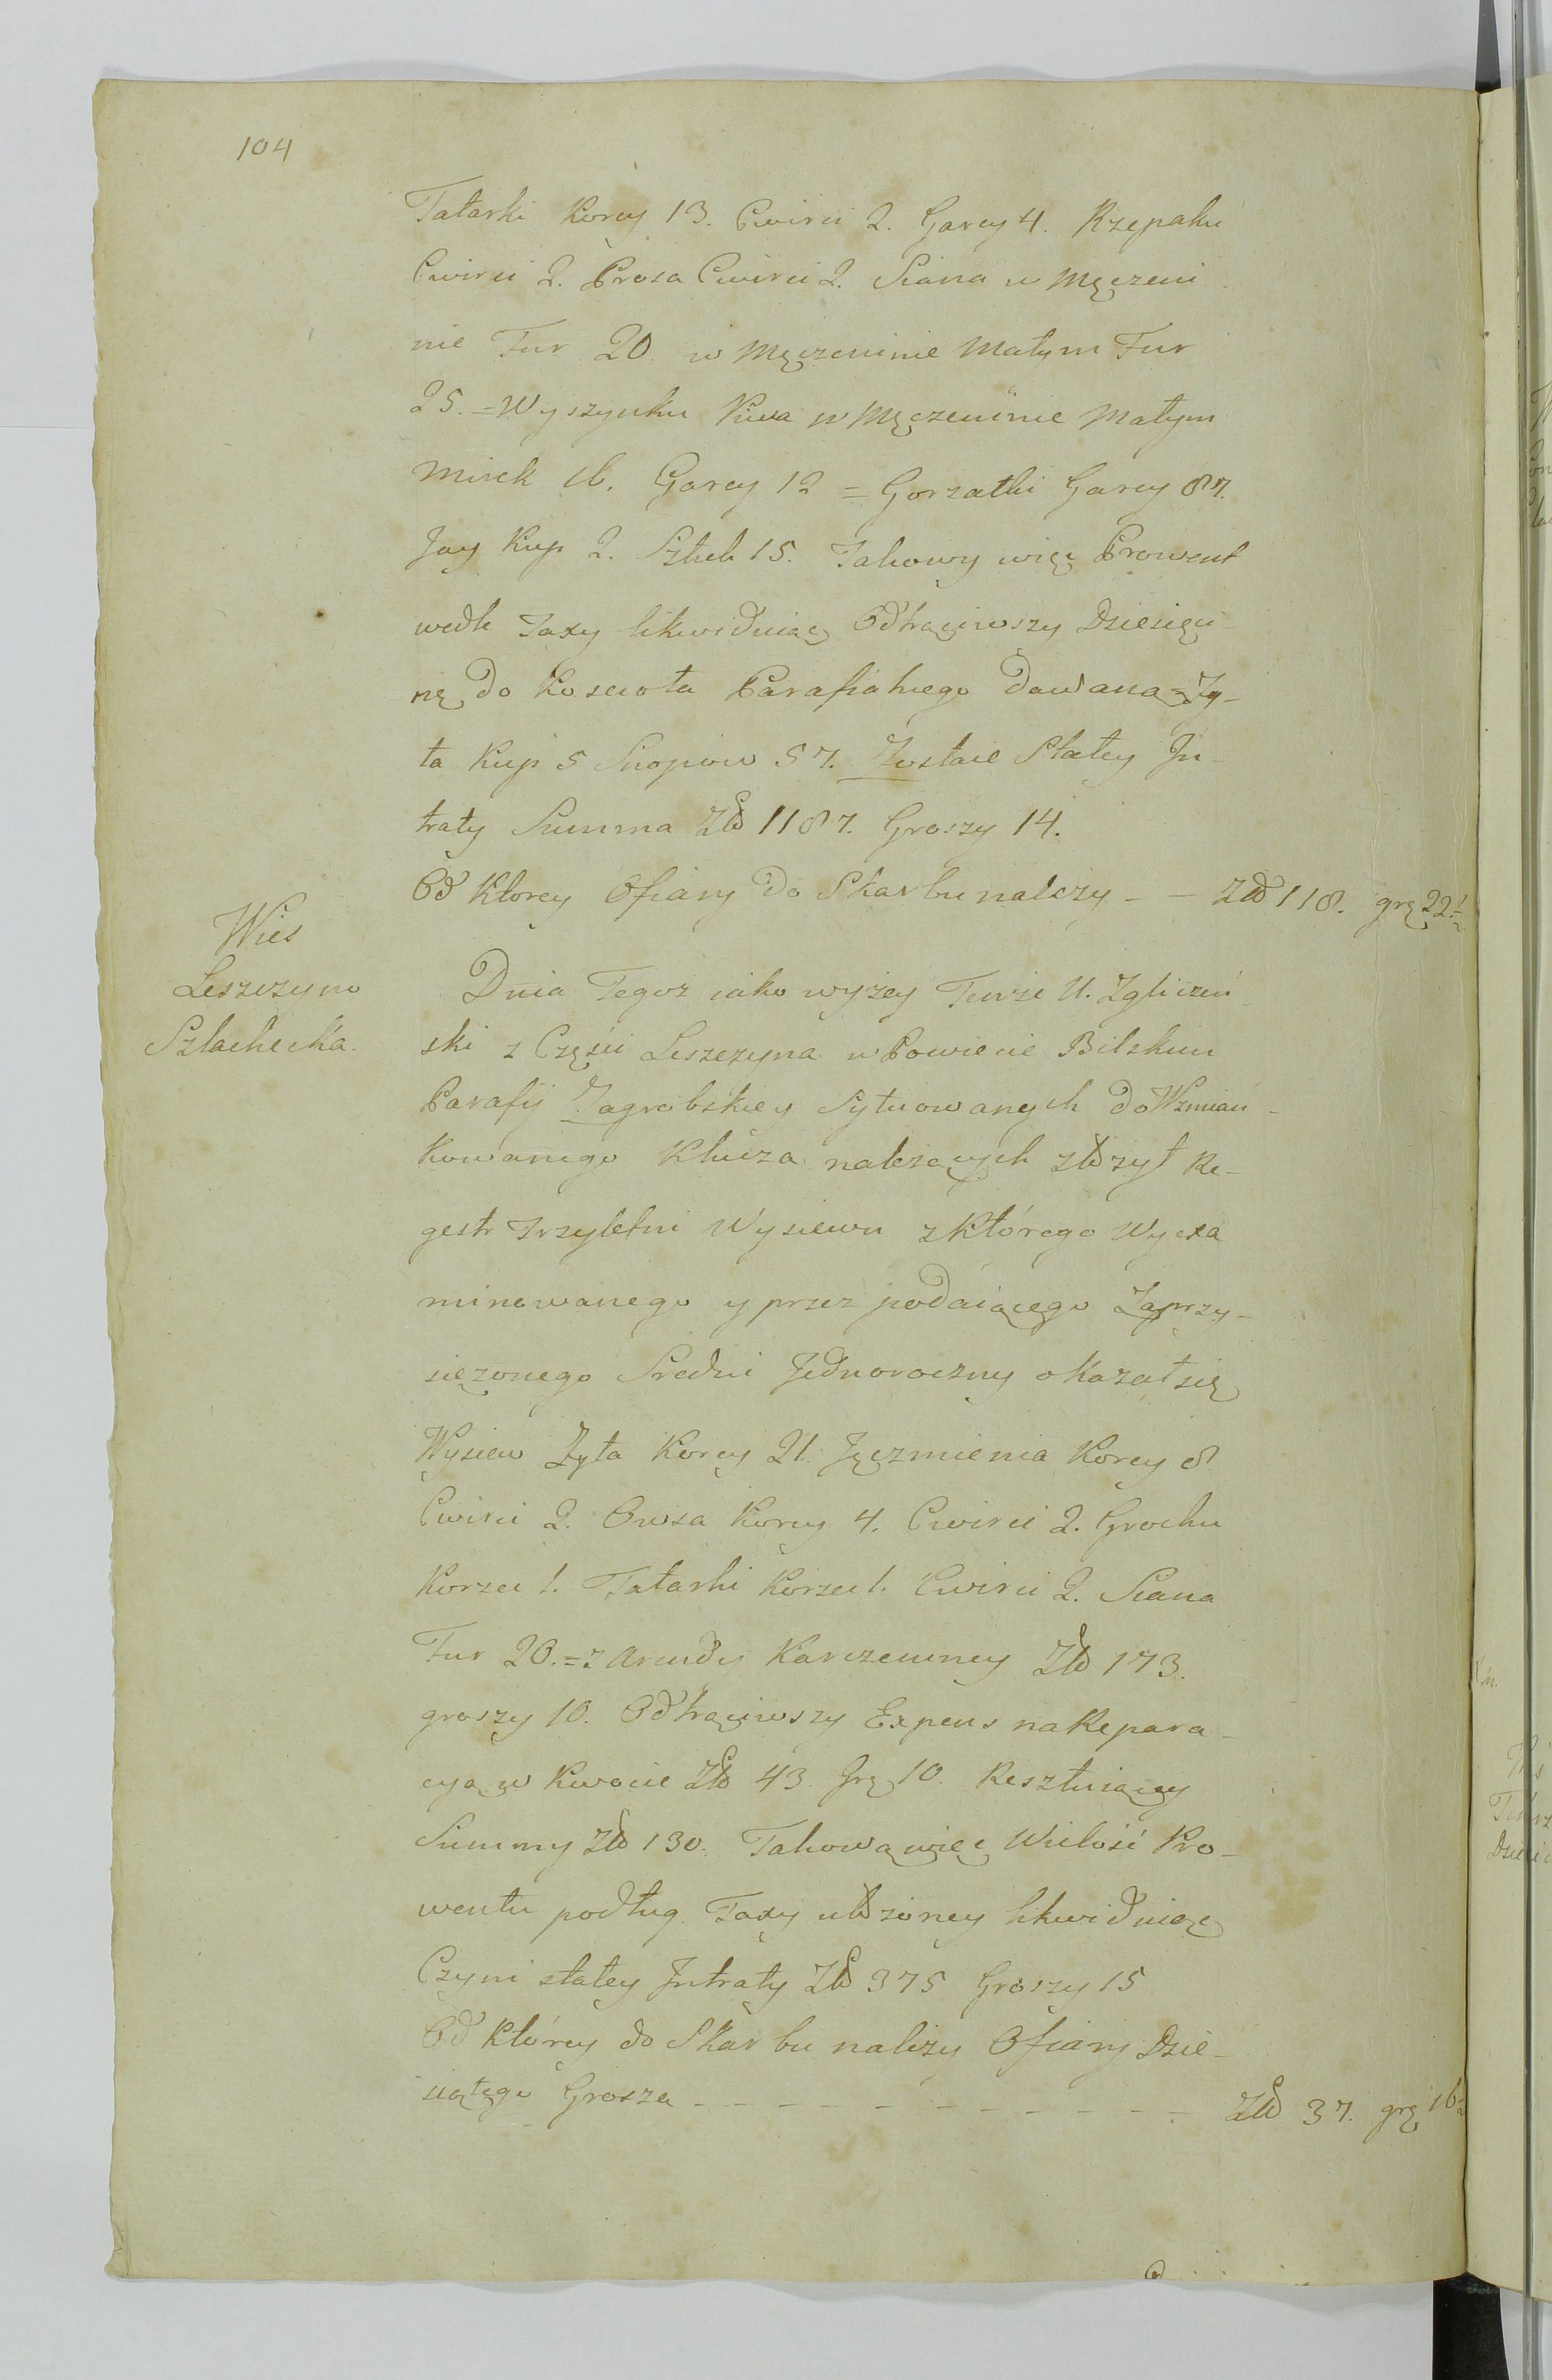 104
Tatarki Korcy 13. Cwirci 2. Garcy 4. Rzepaku
Cwirci 2. Prosa Cwirci 2. Siana w Męczeni
nie Fur 20. w Męczeninie Małym Fur
25. = Wyszynku Piwa w Męczeninie Małym
Mirek 16. Garcy 12 = Gorzałki Garcy 87.
Jay Kup 2. Sztuk 15. Takowy więc Prowent
wedle Taxy likwiduiąc Odtrąciwszy Dziesięci-
nę do Koscioła Parafialnego dawaną Zy-
ta Kup 5 Snopow 57. Zostaie Stałey In-
traty Summa Zło 1187. Groszy 14.
Od Ktorey Ofiary do Skarbu należy - - Zło 118. grę 22 1/2
Wies
Leszczyno
Szlachecka.
Dnia Tegoz iako wyżey Tenże U. Zgliczeń
ski z Części Leszczyna w Powiecie Bilskim
Parafij Zagrobskiey Sytuowanych do Wzmian-
kowanego Klucza należących złożył Re-
gestr Trzyletni Wysiewu z którego Wyexa
minowanego y przez podaiącego Zaprzy-
siężonego Sredni Jednoroczny okazał się
Wysiew Zyta Korcy 21. Jęczmienia Korcy 8.
Cwirci 2. Owsa Korcy 4. Cwirci 2. Grochu
Korzec 1. Tatarki Korzec 1. Cwirci 2. Siana
Fur 20. = z Arendy Karczemney Zło 173.
groszy 10. Odtrąciwszy Expens na Repara-
cyą w Kwocie Zło 43. Grę 10. Resztuiącey
Summy Zło 130. Takową więc Wielość Pro-
wentu podług Taxy ułożoney likwiduiąc
Czyni stałey Intraty Zło 375 Groszy 15
Od którey do Skarbu należy Ofiary Dzie-
siątego Grosza - - - - - - - - - - Zło 37. grę 16 1/2